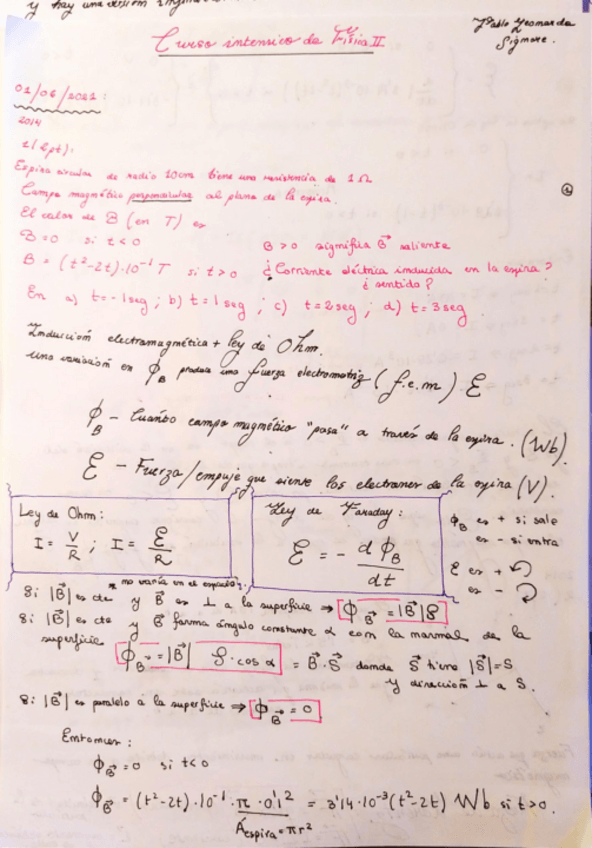 y hay una
Pablo Leonarda
Sigmore.
Curso intensivo de Física II
01/06/2021:
2014
1(2pt):
Espira circular de radio 10cm tiene una resistencia de 1 Ω
Campo magnético perpendicular al plano de la espira.
El valor de B (en T) es
B=0 si t<0 B>0 significa B⃗ saliente
B = (t²-2t)·10⁻¹ T si t>0 ¿Corriente eléctrica inducida en la espira?
¿sentido?
En a) t=-1seg; b) t=1seg; c) t=2seg; d) t=3seg.
Inducción electromagnética + ley de Ohm.
una variación en ϕ_B produce una fuerza electromotriz (f.e.m) ℰ
ϕ_B – Cuánto campo magnético "pasa" a través de la espira. (Wb).
ℰ – Fuerza/empuje que siente los electrones de la espira (V).
Ley de Ohm:
I = V/R ; I = ℰ/R
Ley de Faraday:
ℰ = - dϕ_B/dt
ϕ_B es + si sale
es - si entra
ℰ es + ↺
es - ↻
* no varía en el espacio.
Si |B⃗| es cte y B⃗ es ⊥ a la superficie ⇒ ϕ_B⃗ = |B⃗|S
Si |B⃗| es cte y B⃗ forma ángulo constante α con la normal de la
superficie
ϕ_B⃗ = |B⃗| S·cos α = B⃗·S⃗ donde S⃗ tiene |S⃗|=S
y dirección ⊥ a S.
Si |B⃗| es paralelo a la superficie ⇒ ϕ_B⃗ = 0
Entonces:
ϕ_B⃗ = 0 si t<0
ϕ_B⃗ = (t²-2t)·10⁻¹·π·0'1² = 3'14·10⁻³(t²-2t) Wb si t>0.
Áespira=πr²